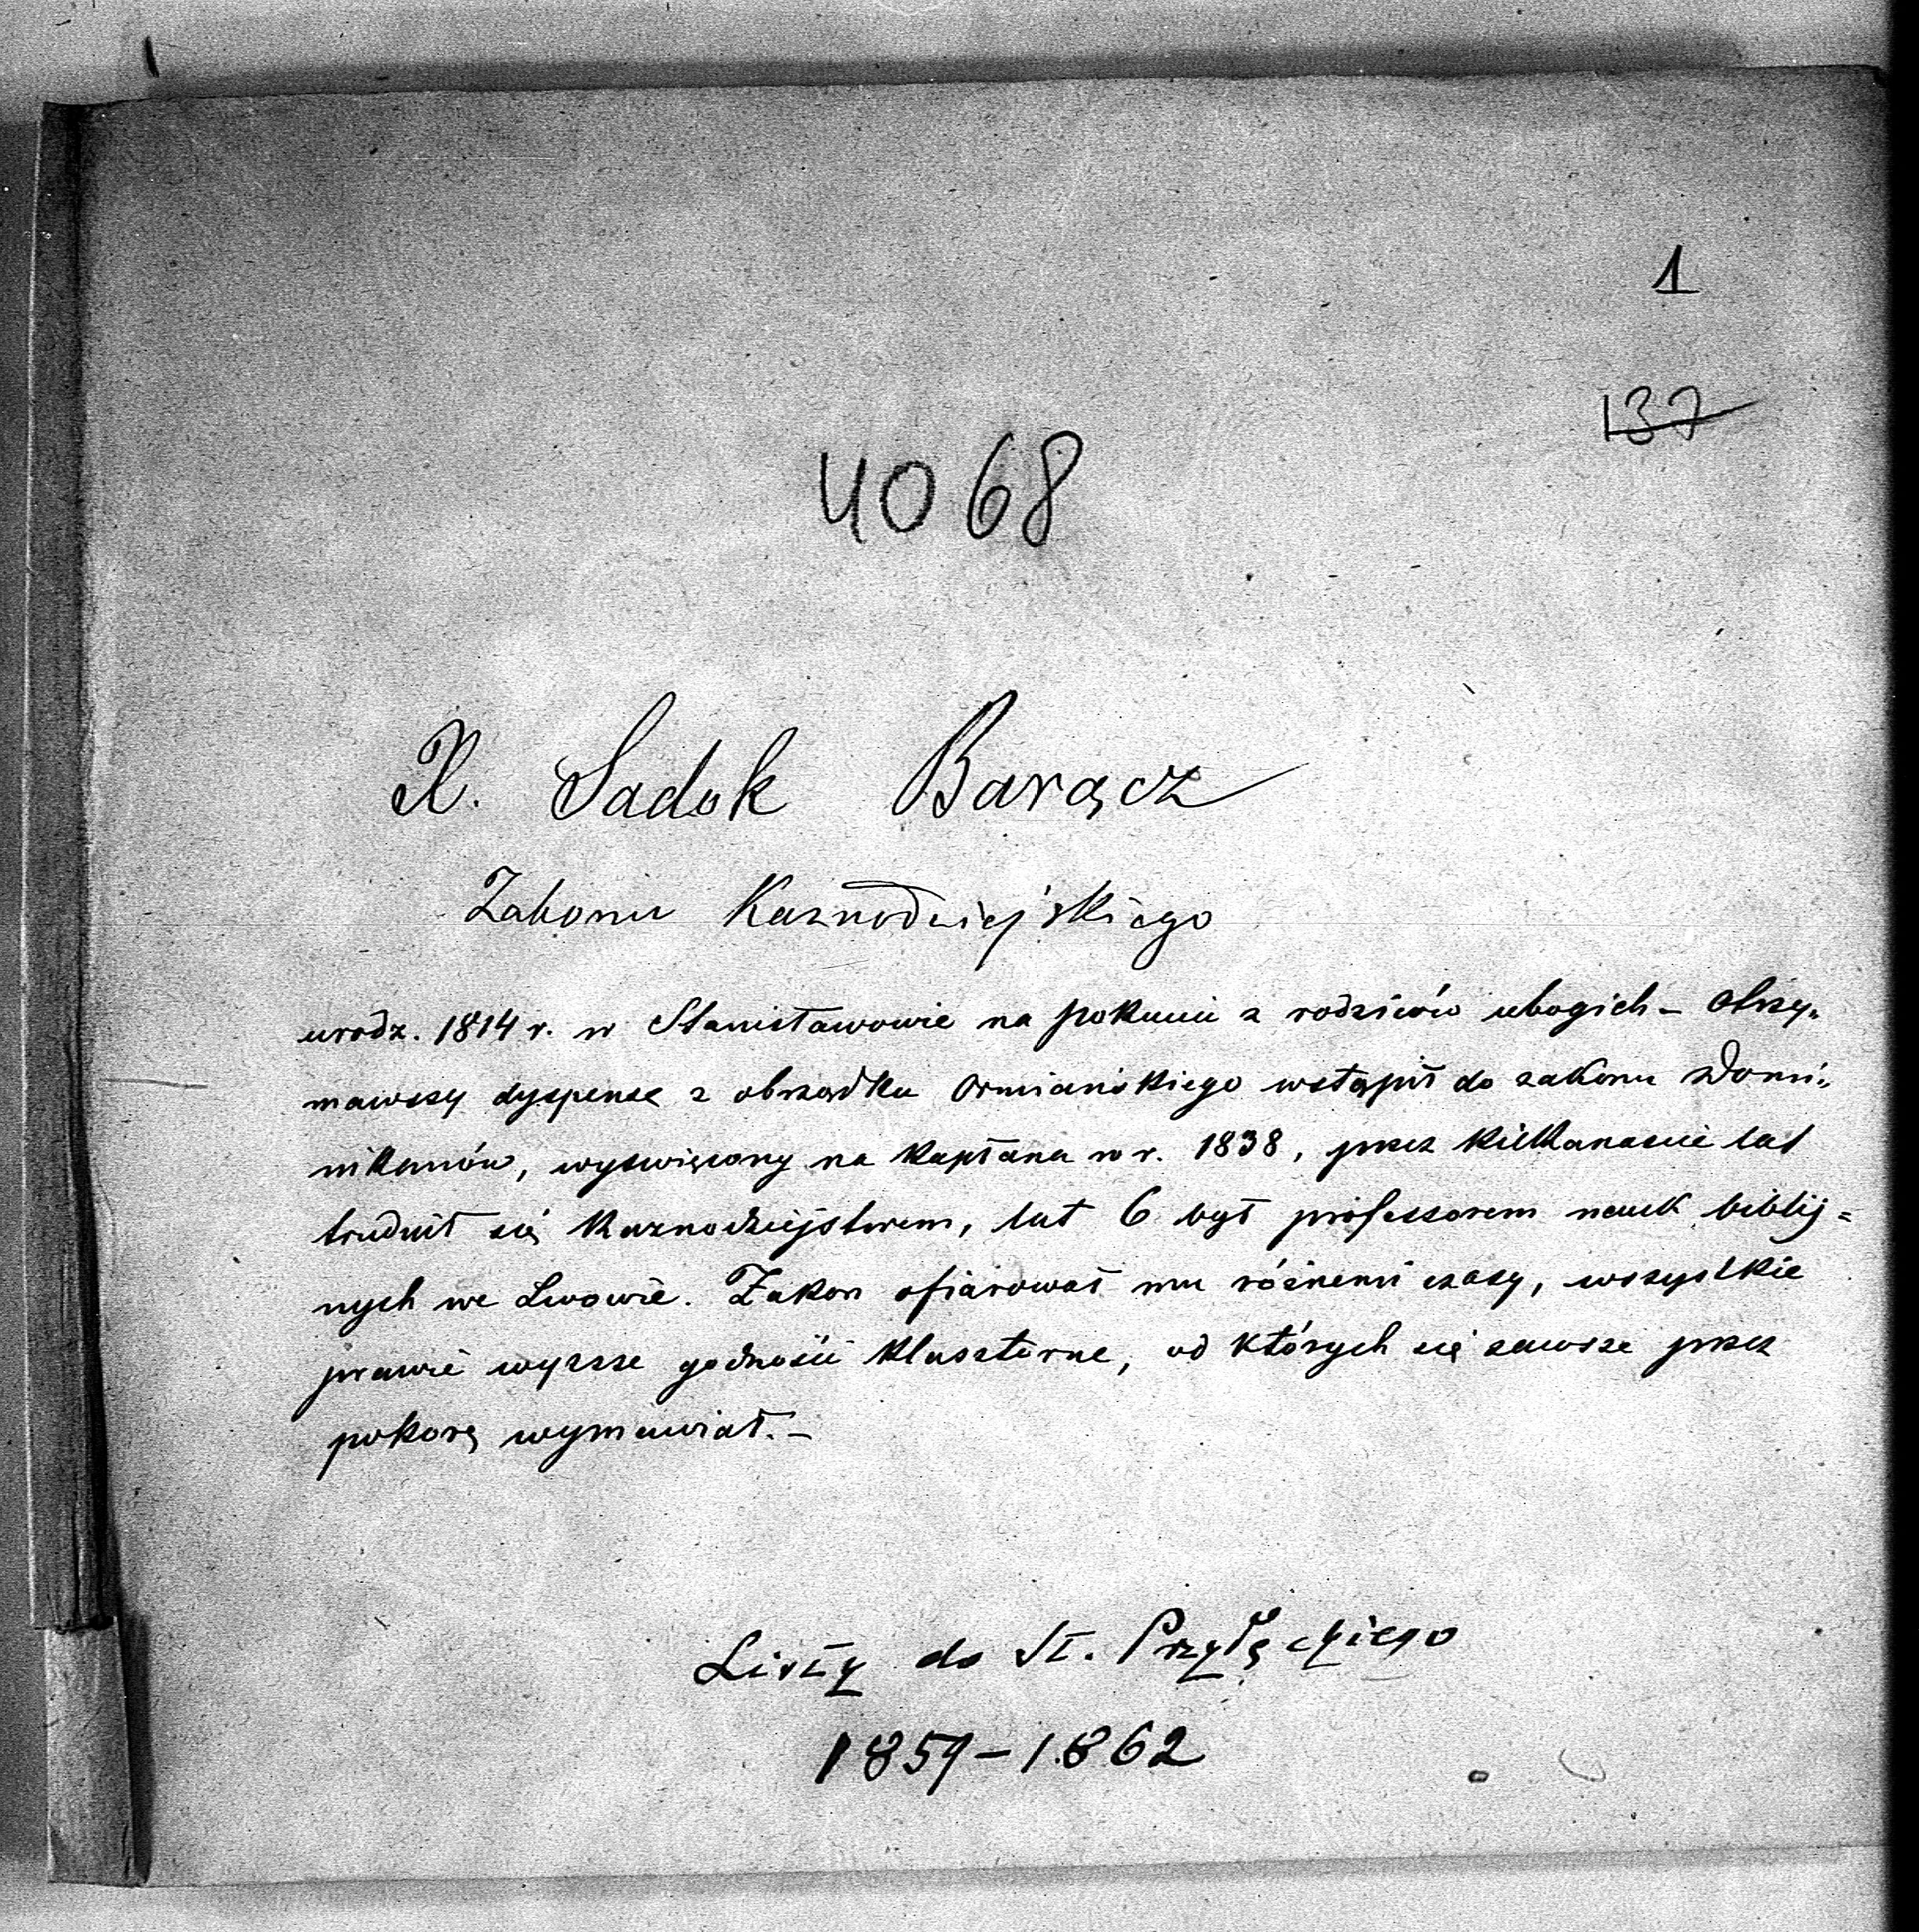 1
137
4068
X. Sadok Barącz
Zakonu Kaznodziejskiego
urodz. 1814 r. w Stanisławowie na pokuciu z rodziców ubogich – Otrzy„
mawszy dyspensę z obrządku ormiańskiego wstąpił do zakonu Domi„
nikanów, wyswięcony na kapłana w r. 1838, przez kilkanascie lat
trudnił się kaznodziejstwem, lat 6 był professorem nauk biblij=
nych we Lwowie. Zakon ofiarował mu róznemi czasy, wszystkie
prawie wyzsze godności klasztorne, od których się zawsze przez
pokorę wymawiał. –
Listy do St. Przyłęckiego
1859–1862